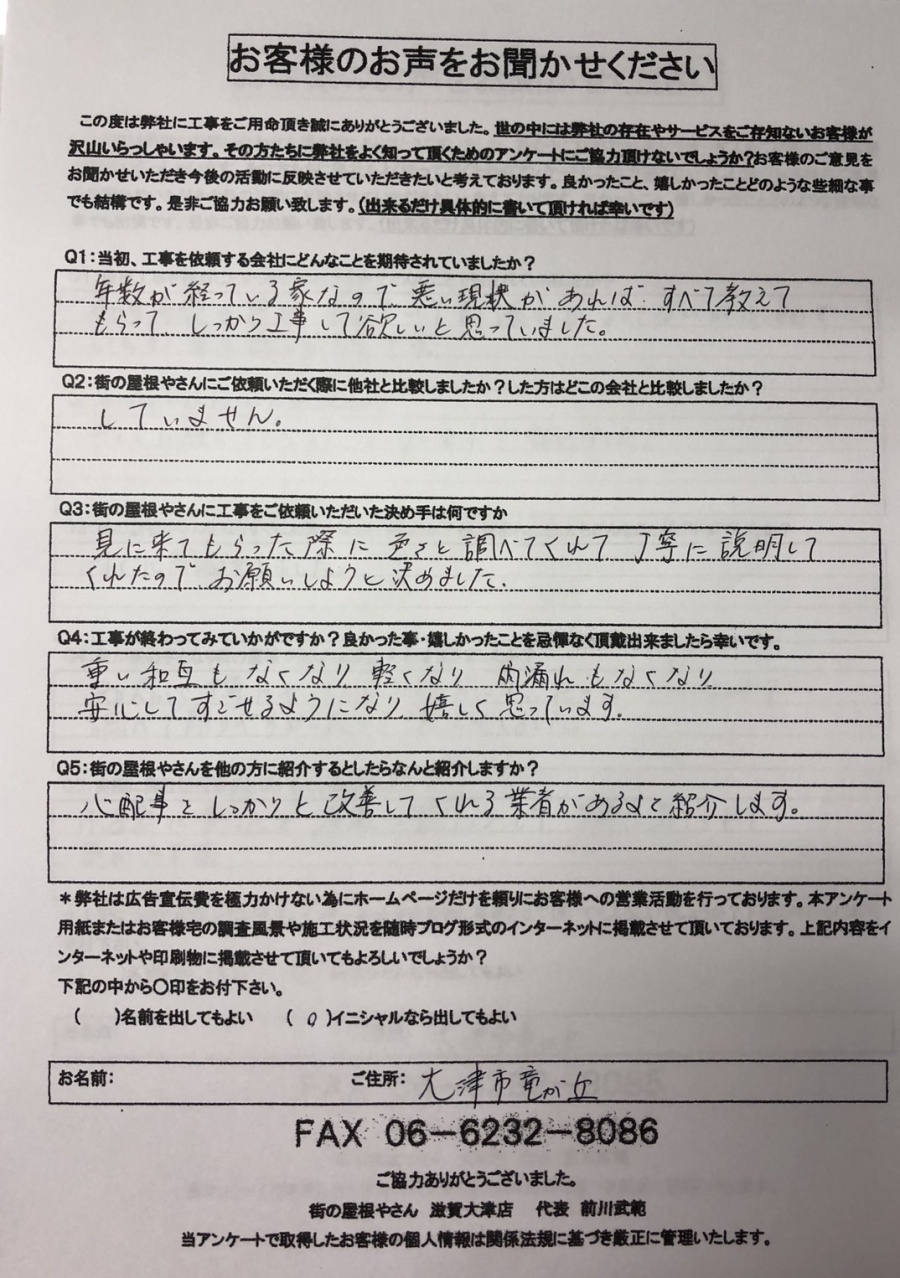 お客様のお声をお聞かせください
この度は弊社に工事をご用命頂き誠にありがとうございました。世の中には弊社の存在やサービスをご存知ないお客様が
沢山いらっしゃいます。その方たちに弊社をよく知って頂くためのアンケートにご協力頂けないでしょうか?お客様のご意見を
お聞かせいただき今後の活動に反映させていただきたいと考えております。良かったこと、嬉しかったことどのような些細な事
でも結構です。是非ご協力お願い致します。(出来るだけ具体的に書いて頂ければ幸いです)
Q1:当初、工事を依頼する会社にどんなことを期待されていましたか?
年数が経っている家なので、悪い現状があれば、すべて教えて
もらって、しっかり工事して欲しいと思っていました。
Q2:街の屋根やさんにご依頼いただく際に他社と比較しましたか?した方はどこの会社と比較しましたか?
していません。
Q3:街の屋根やさんに工事をご依頼いただいた決め手は何ですか
見に来てもらった際に色々と調べてくれて丁寧に説明して
くれたのでお願いしようと決めました。
Q4:工事が終わってみていかがですか?良かった事・嬉しかったことを忌憚なく頂戴出来ましたら幸いです。
重い和瓦もなくなり、軽くなり、雨漏れもなくなり
安心してすごせるようになり、嬉しく思っています。
Q5:街の屋根やさんを他の方に紹介するとしたらなんと紹介しますか?
心配事をしっかりと改善してくれる業者があるよと紹介します。
*弊社は広告宣伝費を極力かけない為にホームページだけを頼りにお客様への営業活動を行っております。本アンケート
用紙またはお客様宅の調査風景や施工状況を随時ブログ形式のインターネットに掲載させて頂いております。上記内容をイ
ンターネットや印刷物に掲載させて頂いてもよろしいでしょうか?
下記の中から〇印をお付下さい。
( )名前を出してもよい (○)イニシャルなら出してもよい
お名前: ご住所: 大津市竜が丘
FAX 06-6232-8086
ご協力ありがとうございました。
街の屋根やさん 滋賀大津店 代表 前川武範
当アンケートで取得したお客様の個人情報は関係法規に基づき厳正に管理いたします。